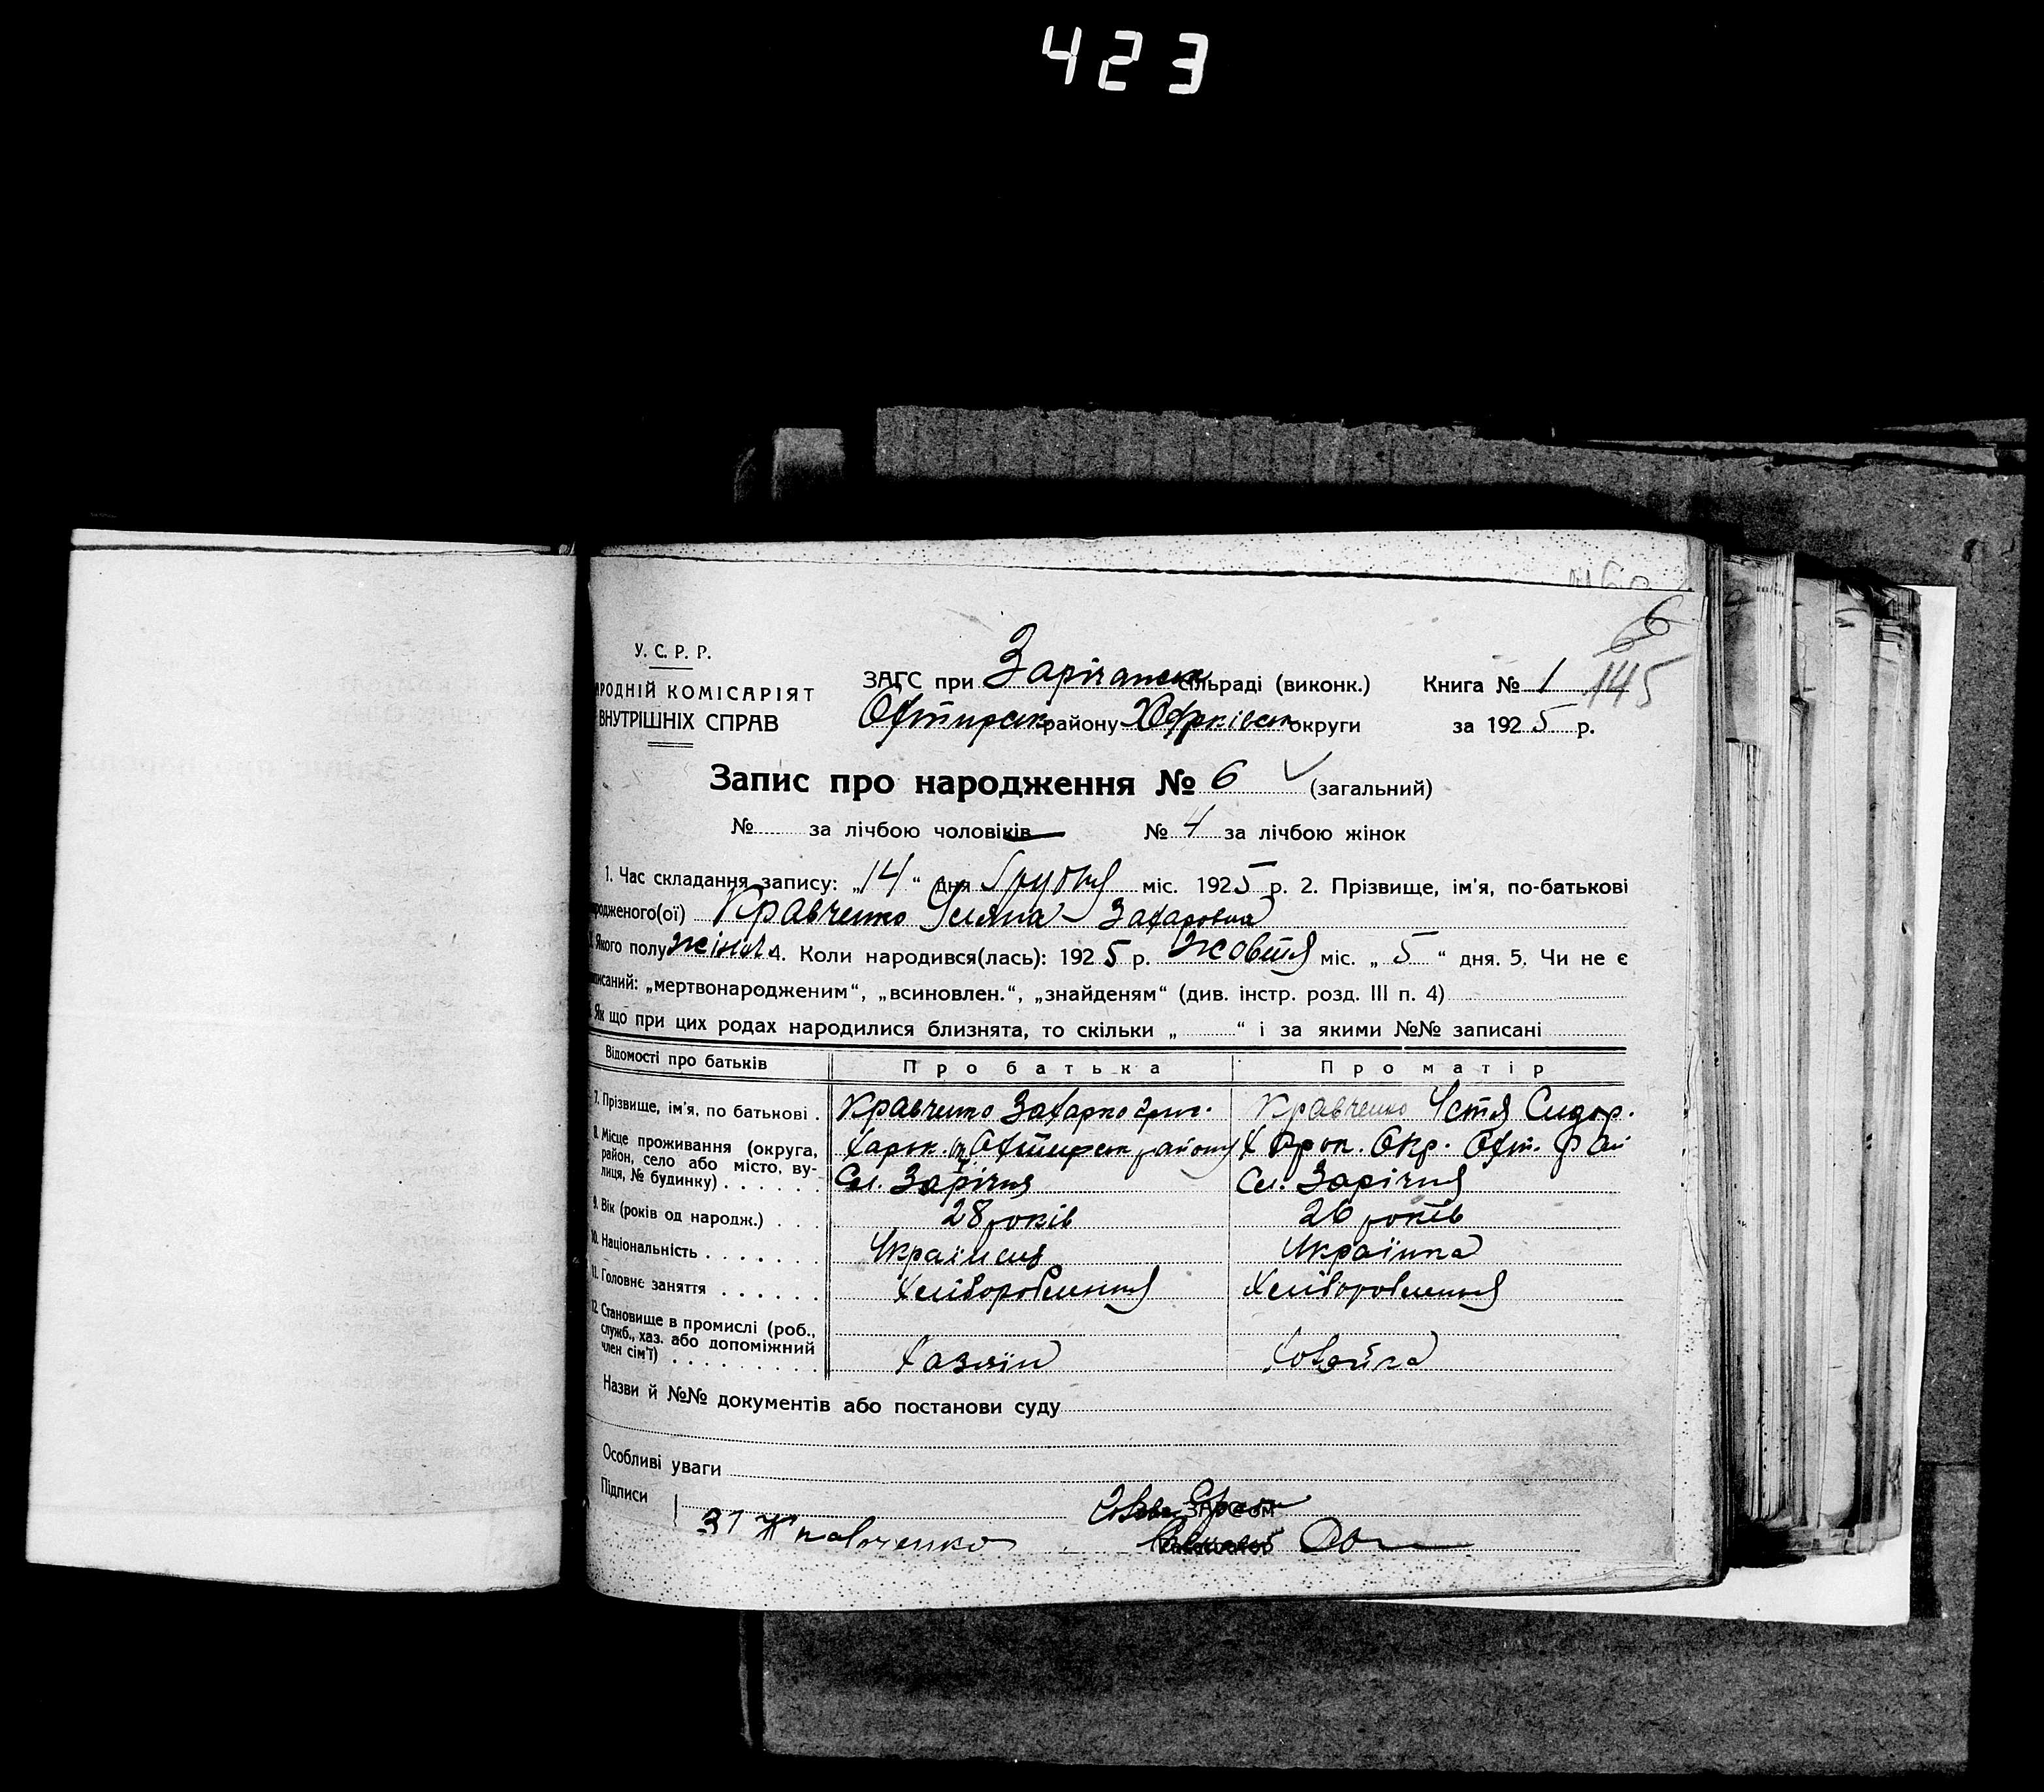 423
6
145
У. С. Р. Р.
РОДНІЙ КОМІСАРІЯТ
ВНУТРІШНІХ СПРАВ
ЗАГС при Зарічанск сільраді (виконк.) Книга № 1
Охтирськ району Харківськ округи за 1925 р.
Запис про народження № 6 (загальний)
№ за лічбою чоловіків № 4 за лічбою жінок
1. Час складання запису: „14“ дня Грудня міс. 1925 р. 2. Прізвище, ім'я, по-батькові
родженого(ої) Кравченко Уляна Захаровна
Якого полу жіноч. 4. Коли народився(лась): 1925 р. Жовтня міс. „5“ дня. 5. Чи не є
записаний: „мертвонародженим“, „всиновлен.“, „знайденям“ (див. інстр. розд. III п. 4)
Як що при цих родах народилися близнята, то скільки „ “ і за якими №№ записані
Відомості про батьків Про батька Про матір
7. Прізвище, ім'я, по батькові . Кравченко Захарко Григ. Кравченко Устя Сидор.
8. Місце проживання (округа, район, село або місто, вулиця, № будинку) Харьк. Охтирськ району Сел. Зарічня Окр. Охт. Рай Сел. Зарічня
9. Вік (років од народж.) . . . 28 років 26 років
10. Національність . . . . . . Українець Українка
11. Головне заняття . . . . . . Хлібороблення Хлібороблення
12. Становище в промислі (роб., служб., хаз. або допоміжний член сім'ї) . . . . . . . . . Хазяїн Хозяйка
Назви й №№ документів або постанови суду
Особливі уваги
Підписи
ЗАГСОМ
Кравченко